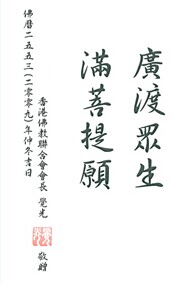 廣渡眾生
滿菩提願
香港佛教聯合會會長 覺光 敬贈
佛曆二五五三(二零零九)年仲冬吉日